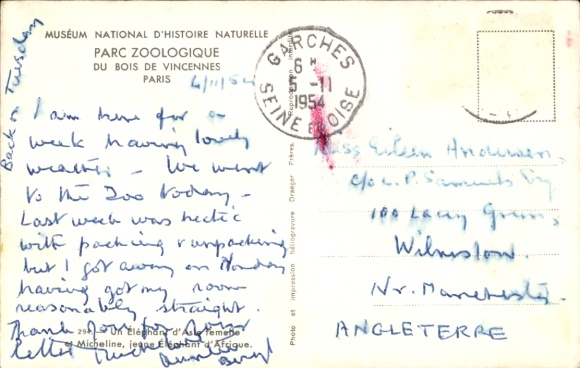 MUSÉUM NATIONAL D'HISTOIRE NATURELLE
PARC ZOOLOGIQUE
DU BOIS DE VINCENNES
PARIS
4/11/54
Back on Tuesday
I am here for a
week having lovely
weather - We went
to the Zoo today -
Last week was hectic
with packing & unpacking
but I got away on Monday
having got my room
reasonably straight.
Thank you for your
letter Much love
Beryl
Un Éléphant d'Asie femelle
et Micheline, jeune Éléphant d'Afrique.
Photo et impression héliogravure Draeger Frères.
Reproduction interdite
GARCHES
6 H
5 -11
1954
SEINE ET OISE
Miss Eileen Anderson,
c/o L. P. Samuels Esq
100 Lacey Green,
Wilmslow.
Nr. Manchester.
ANGLETERRE